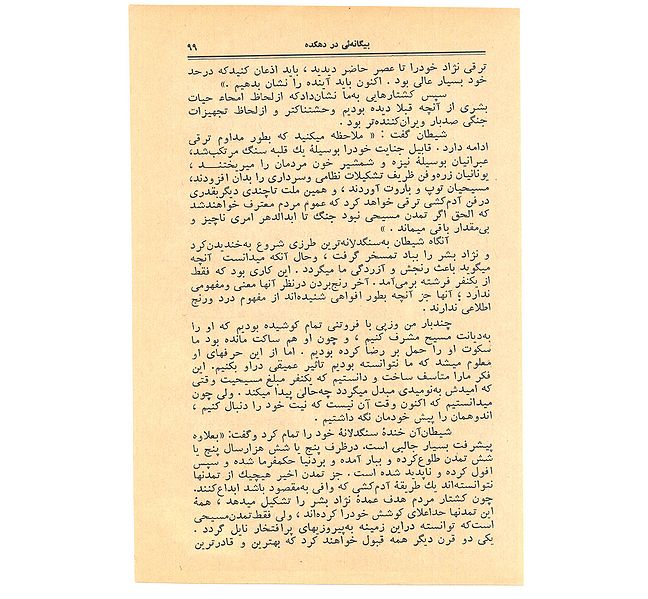 بیگانه‌ئی در دهکده
۹۹
ترقی نژاد خودرا تا عصر حاضر دیدید ، باید اذعان کنیدکه درحد
خود بسیار عالی بود . اکنون باید آینده را نشان بدهیم .»
سپس کشتارهایی به‌ما نشان‌دادکه ازلحاظ امحاء حیات
بشری از آنچه قبلا دیده بودیم وحشتناکتر و ازلحاظ تجهیزات
جنگی صدبار ویران‌کننده‌تر بود .
شیطان گفت : « ملاحظه میکنید که بطور مداوم ترقی
ادامه دارد . قابیل جنایت خودرا بوسیلهٔ یك قلبه سنگ مرتکب‌شد،
عبرانیان بوسیلهٔ نیزه و شمشیر خون مردمان را میریختند ،
یونانیان زره‌وفن ظریف تشکیلات نظامی وسرداری را بدان افزودند،
مسیحیان توپ و باروت آوردند ، و همین ملت تاچندی دیگربقدری
درفن آدم‌کشی ترقی خواهد کرد که عموم مردم معترف خواهندشد
که الحق اگر تمدن مسیحی نبود جنگ تا ابدالدهر امری ناچیز و
بی‌مقدار باقی میماند . »
آنگاه شیطان به‌سنگدلانه‌ترین طرزی شروع به‌خندیدن‌کرد
و نژاد بشر را بباد تمسخر گرفت ، وحال آنکه میدانست آنچه
میگوید باعث رنجش و آزردگی ما میگردد . این کاری بود که فقط
از یکنفر فرشته برمی‌آمد . آخر رنج‌بردن درنظر آنها معنی ومفهومی
ندارد ؛ آنها جز آنچه بطور افواهی شنیده‌اند از مفهوم درد ورنج
اطلاعی ندارند .
چندبار من وزپی با فروتنی تمام کوشیده بودیم که او را
به‌دیانت مسیح مشرف کنیم ، و چون او هم ساکت مانده بود ما
سکوت او را حمل بر رضا کرده بودیم . اما از این حرفهای او
معلوم میشد که ما نتوانسته بودیم تأثیر عمیقی دراو بکنیم. این
فکر مارا متأسف ساخت و دانستیم که یکنفر مبلغ مسیحیت وقتی
که امیدش به‌نومیدی مبدل میگردد چه‌حالی پیدا میکند . ولی چون
میدانستیم که اکنون وقت آن نیست که نیت خود را دنبال کنیم ،
اندوهمان را پیش خودمان نگه داشتیم .
شیطان‌آن خندهٔ سنگدلانهٔ خود را تمام کرد وگفت: «بعلاوه
پیشرفت بسیار جالبی است. درظرف پنج یا شش هزارسال پنج یا
شش تمدن طلوع‌کرده و ببار آمده و بردنیا حکمفرما شده و سپس
افول کرده و ناپدید شده است . جز تمدن اخیر هیچیك از تمدنها
نتوانسته‌اند یك طریقهٔ آدم‌کشی که وافی به‌مقصود باشد ابداع‌کنند.
چون کشتار مردم هدف عمدهٔ نژاد بشر را تشکیل میدهد ، همهٔ
این تمدنها حداعلای کوشش خودرا کرده‌اند ، ولی فقط‌تمدن‌مسیحی
است‌که توانسته دراین زمینه به‌پیروزیهای پرافتخار نایل گردد .
یکی دو قرن دیگر همه قبول خواهند کرد که بهترین و قادرترین